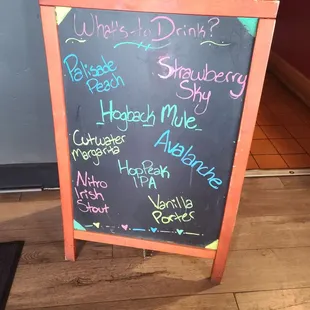 What's to Drink?
Palisade
Peach
Strawberry
Sky
Hogback Mule
Cutwater
Margarita
Avalanche
Hop Peak
IPA
Nitro
Irish
Stout
Vanilla
Porter